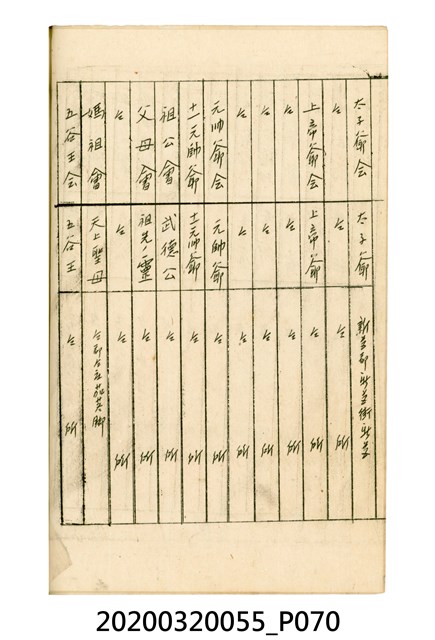 太子爺会 太子爺 新豊郡新豊街新豊
仝 仝 仝 所
上帝爺会 上帝爺 仝 所
仝 仝 仝 所
仝 仝 仝 所
仝 仝 仝 所
元帅爺会 元帥爺 仝 所
十一元帥爺 十一元帅爺 仝 所
祖公會 武德公 仝 所
父母會 祖先ノ靈 仝 所
仝 仝 仝 所
媽祖會 天上聖母 仝郡仝庄茄苳脚
五谷王会 五谷王 仝 所
20200320055_P070